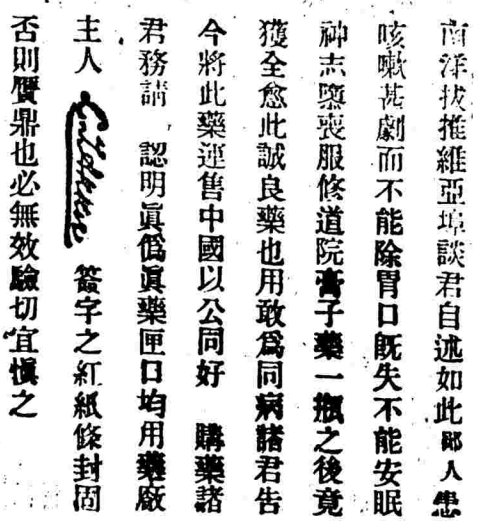 南洋拔推維亞埠談君自述如此鄙人患
咳嗽甚劇而不能除胃口旣失不能安眠
神志墮喪服修道院膏子藥一瓶之後竟
獲全愈此誠良藥也用敢爲同病諸君告
今將此藥運售中國以公同好 購藥諸
君務請 認明眞僞眞藥匣口均用藥廠
主人 簽字之紅紙條封固
否則贋鼎也必無效驗切宜愼之